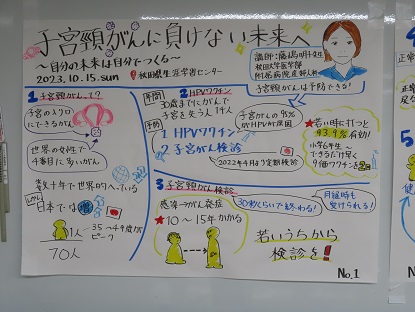 子宮頸がんに負けない未来へ
～自分の未来は自分でつくる～
2023.10.15.sun
秋田県生涯学習センター
秋田大学医学部
附属病院産婦人科
子宮頸がんは予防できる!
1 子宮頸がん
子宮の入り口
にできるがん
世界の女性で
4番目に多いがん
数十年で世界的にへっている
しかし
日本では増
1人
70人
35～49歳が
ピーク
2
予防
30歳までにがんで
子宮を失う人
1 HPVワクチン
2 子宮がん検診
子宮がんの95%
がHPVが原因
2022年4月より定期接種
★若い時に打つと
有効!
小学6年生～
できるだけ早く
9価ワクチンを
3 子宮頸がん検診
感染→がん発症
★10～15年かかる
30秒くらいで終わる!
月経時も
受けられる!
若いうちから
検診を!
No.1